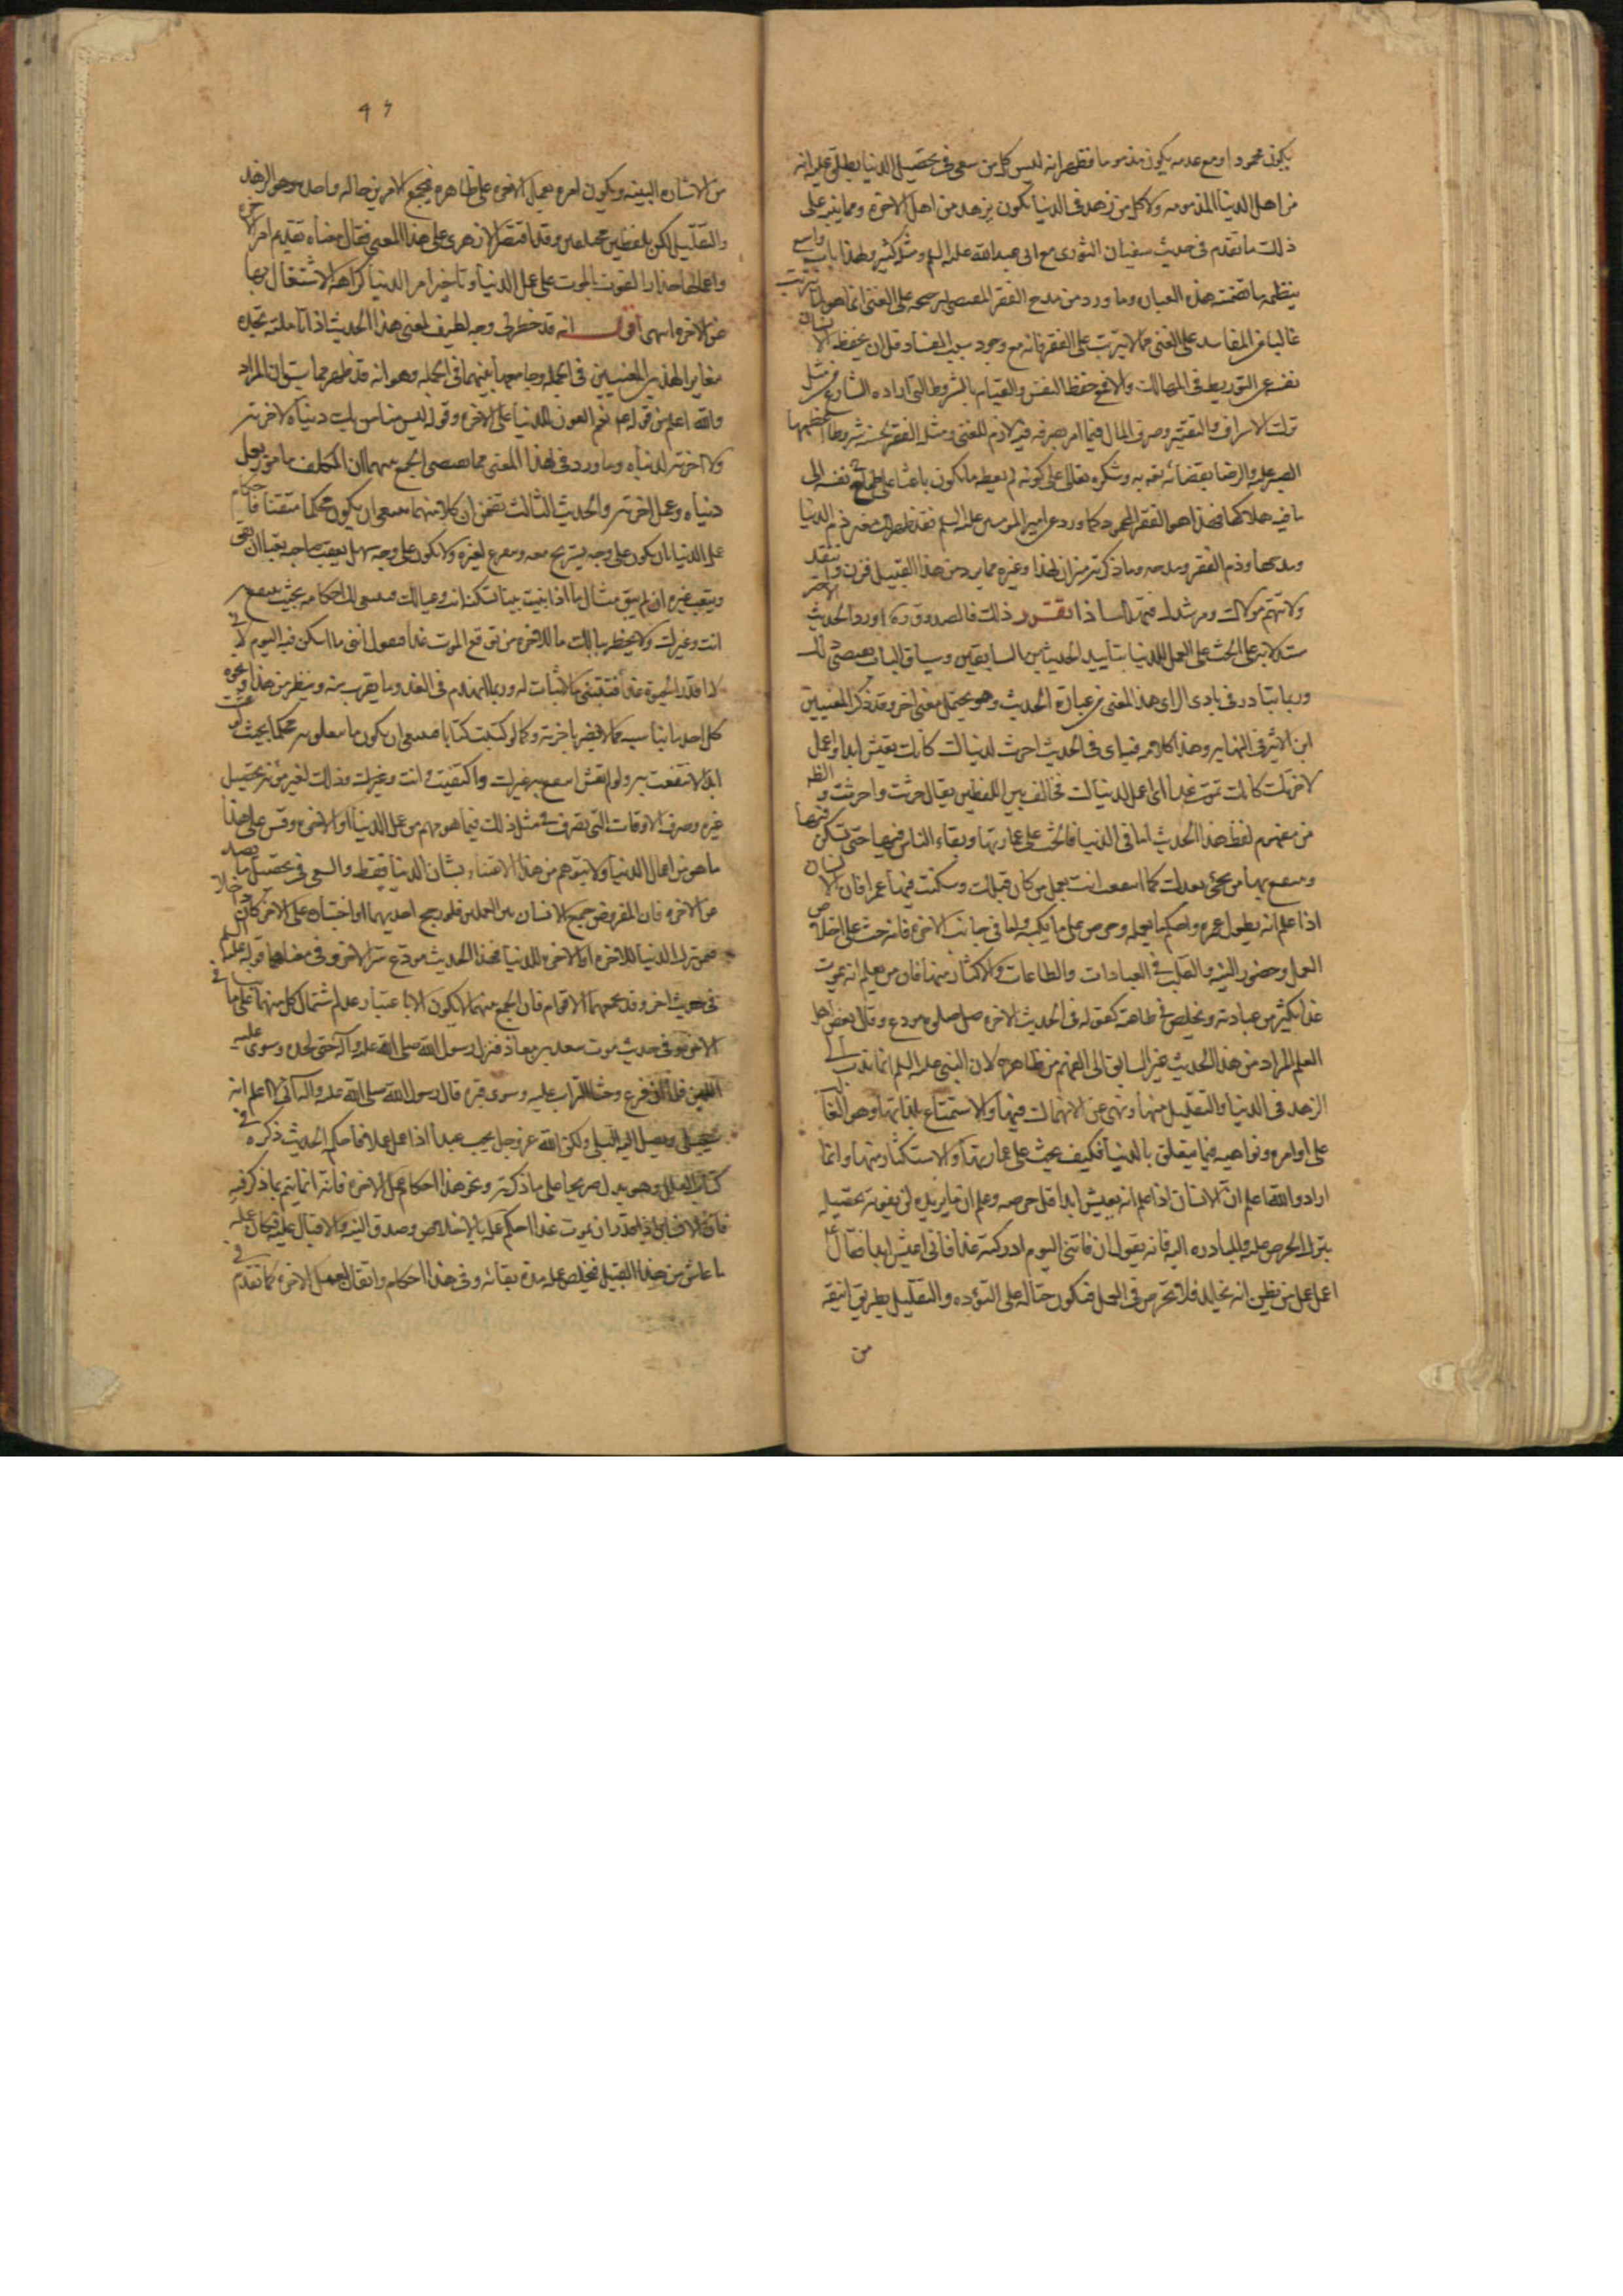 يكون محمودا ومع عدمه يكون مذموما فظهر انه ليس كل من سعى في تحصيل الدنيا يطلق عليه انه
من اهل الدنيا المذمومه ولا كل من زهد في الدنيا يكون بزهده من اهل الاخرة ومما ينبه على
ذلك ما تقدم في حديث سفيان الثوري مع ابي عبدالله عليه السلم ومثله كثير وهذا باب واسع
ينظمه ما تضمنته هذه العبارة وما ورد من مدح الفقر المقتضي لترجيحه على الغنى انما هو لما يترتب
غالبا من المفاسد على الغنى مما لا يترتب على الفقر فانه مع وجود سبب الفساد قل ان يحفظ الانسان
نفسه عن التوريط في المهالك والا فمع حفظ النفس والقيام بالشروط التي اراده الشارع من مثل
ترك الاسراف والتقتير وصرف المال فيما امر بصرفه فيه لازم للغنى ومثله الفقر بحسنه شروط اعظمها
الصبر عليه والرضا بقضائه به وشكره تعالى على كونه لم يعطه ما يكون باعثا على نفسه الى
ما فيه هلاكها فهذا هو الفقر المحمود كما ورد عن امير المومنين عليه السلم فقد ظهر لك معنى ذم الدنيا
ومدحها وذم الفقر ومدحه وما ذكرته ميزان لهذا وغيره مما يرد من هذا القبيل فزن وانتقد
ولا تتهم مولاك ومرشدك فتهلك اذا تقرر ذلك فالصدوق ره اورد الحديث الاخير
مستدلا به على الحث على العمل للدنيا بتأييد الحديثين السابقين وسياق الباب يقتضي ذلك
وربما تبادر في بادي الراى هذا المعنى من عبارة الحديث وهو يحتمل معنى اخر وقد ذكر المعنيين
ابن الاثير في النهايه وهذا كلامه فيها في الحديث احرث لدنياك كانك تعيش ابدا واعمل
لاخرتك كانك تموت غدا اى اعمل لدنياك فخالف بين اللفظين يقال حرثت واحرثت والظاهر
من مفهوم لفظ هذا الحديث اما في الدنيا فالحث على عمارتها وبقاء الناس فيها حتى يسكن فيها
وينتفع بها من يجئ بعدك كما انتفعت انت بعمل من كان قبلك وسكنت فيما عمر فان الانسان
اذا علم انه يطول عمره واحكم ما يعمله وحرص على ما يكسبه واما في جانب الاخرة فانه حث على اخلاص
العمل وحضور النيه والقلب في العبادات والطاعات والاكثار منها فان من يعلم انه يموت
غدا يكثر من عبادته ويخلص في طاعته كقوله في الحديث الاخر صل صلوة مودع وقال بعض اهل
العلم المراد من هذا الحديث غير السابق الى الفهم من ظاهره لان النبي عليه السلم انما ندب الى
الزهد في الدنيا والتقليل منها ونهى عن الانهماك فيها والاستمتاع بلذاتها وهو الغالب
على اوامره ونواهيه فيما يتعلق بالدنيا فكيف يحث على عمارتها والاستكثار منها وانما
اراد والله اعلم ان الانسان اذا علم انه يعيش ابدا قل حرصه وعلم ان ما يريده لن يفوته تحصيله
بترك الحرص عليه والمبادره اليه فانه يقول ان فاتني اليوم ادركته غدا فاني اعيش ابدا فقال
اعمل عمل من يظن انه يخلد فلا تحرص في العمل فيكون حثا له على التؤده والتقليل بطريق انيقه
من
٩٦
من الاشارة البينه ويكون امره بعمل الاخره على ظاهره فيجمع الامرين حاله واحده وهو الزهد
والتقليل لكن بلفظين مختلفين وقد اقتصر الازهري على هذا المعنى فقال معناه تقديم امر الاخرة
واعمالها حذار الفوت بالموت على عمل الدنيا وتأخير امر الدنيا كراهة الاشتغال بها
عن الاخره انتهى اقول انه قد خطر لي وجه لطيف لمعنى هذا الحديث اذا تأملته تجده
مغايرا لهذين المعنيين في الجمله وجامعا بينهما في الجمله وهو انه قد ظهر مما سبق ان المراد
والله اعلم من قوله نعم العون الدنيا على الاخره وقوله ليس منا من ترك دنياه لاخرته
ولا اخرته لدنياه وما ورد في هذا المعنى مما يقتضي الجمع بينهما ان المكلف مامور بعمل
دنياه وعمل اخرته والحديث الثالث تضمن ان كلا منهما ينبغي ان يكون محكما متقنا فاحكام
عمل الدنيا بان يكون على وجه يستريح معه وينتفع لغيره ولا يكون على وجه سهل يتعب صاحبه بقاءا ان بقى
ويتعب غيره ان لم يبق مثال ما اذا بنيت بيتا تسكنه انت وعيالك فينبغي لك احكامه بحيث ينتفع به
انت وغيرك ولا يخطر ببالك ما للاخره من توقع الموت غدا فيقول ابني ما اسكن فيه اليوم لا في
غدا فتبتني بلا ثبات له وربما انهدم في الغد وما يقرب منه وينظر من هذا ونحوه
كل احد ما يناسبه مما لا يضر باخرته وكما لو كتبت كتابا فينبغي ان يكون ما معلومه محكما بحيث لو عشت
ابدا لانتفعت به ولو لم تعش انتفع به غيرك واكتفيت انت وغيرك وذلك لغيرك مؤنة تحصيل
غيره وصرف الاوقات التي تصرف في مثل ذلك فيما هو مهم من عمل الدنيا او الاخره وقس على هذا
ما هو من اعمال الدنيا ولا يتوهم من هذا الاعتناء بشان الدنيا فقط والسعي في تحصيل ما يصده
عن الاخره فان المفروض جمع الانسان بين العملين فلو رجح احديهما او اختياره على الاخر كان داخلا
فيمن ترك الدنيا للاخره او الاخره للدنيا فهذا الحديث مودع سر الاخر وفي معناهما قوله عليه السلم
في حديث اخر وقد يجمعهما الاقوام فان الجمع بينهما لا يكون الا باعتبار عدم اشتمال كل منهما على ما ينافي
الاخر وفي حديث موت سعد بن معاذ فنزل رسول الله صلى الله عليه وآله حتى لحده وسوى عليه
اللبن فلما ان فرغ وحثا التراب عليه وسوى قبره قال رسول الله صلى الله عليه واله اني لاعلم انه
سيبلى ويصل اليه البلى ولكن الله عز وجل يحب عبدا اذا عمل عملا فاحكمه الحديث ذكره في
كتاب العلل وهو يدل صريحا على ما ذكرته ونحو هذا احكام عمل الاخره فانه انما يتم بما ذكر فيه
فان الانسان اذا قدر ان يموت غدا احكم عمله بالاخلاص وصدق النيه والاقبال عليه فكان عمله
ما عاش من هذا القبيل فيخلص عمله مدة بقائه وفي هذا احكام واتقان لعمل الاخرة كما تقدم في